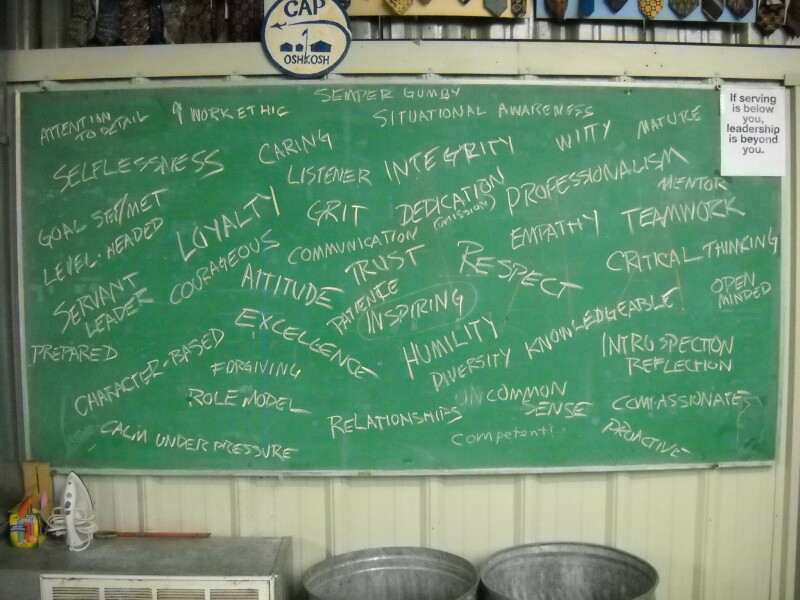 CAP
OSHKOSH
If serving
is below
you,
leadership
is beyond
you.
SEMPER GUMBY
ATTENTION
TO DETAIL
WORK ETHIC
SITUATIONAL AWARENESS
WITTY
MATURE
SELFLESSNESS
CARING
LISTENER
INTEGRITY
PROFESSIONALISM
MENTOR
GOAL SET/MET
LEVEL-HEADED
LOYALTY
GRIT
DEDICATION
(MISSION)
EMPATHY
TEAMWORK
COURAGEOUS
COMMUNICATION
TRUST
RESPECT
CRITICAL THINKING
SERVANT
LEADER
ATTITUDE
PATIENCE
INSPIRING
OPEN
MINDED
PREPARED
EXCELLENCE
HUMILITY
KNOWLEDGEABLE
INTROSPECTION
REFLECTION
CHARACTER-BASED
FORGIVING
DIVERSITY
ROLE MODEL
UNCOMMON
SENSE
COMPASSIONATE
RELATIONSHIPS
CALM UNDER PRESSURE
Competent!
PROACTIVE